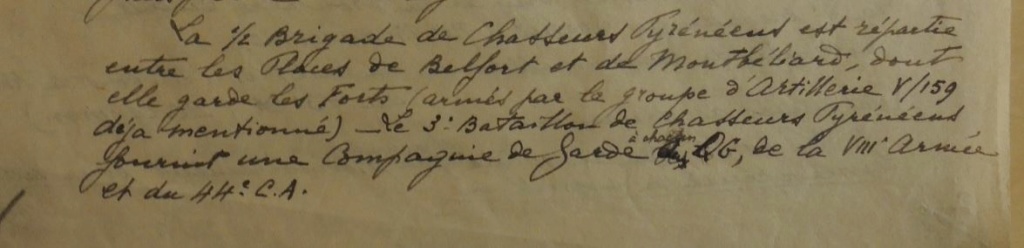 La 1/2 Brigade de Chasseurs Pyrénéens est répartie
entre les Places de Belfort et de Montbéliard, dont
elle garde les Forts (armés par le groupe d'Artillerie V/159
déja mentionné) - Le 3: Bataillon de Chasseurs Pyrénéens
fournit une Compagnie de Garde à chacun QG, de la VIII Armée
et du 44e C.A.